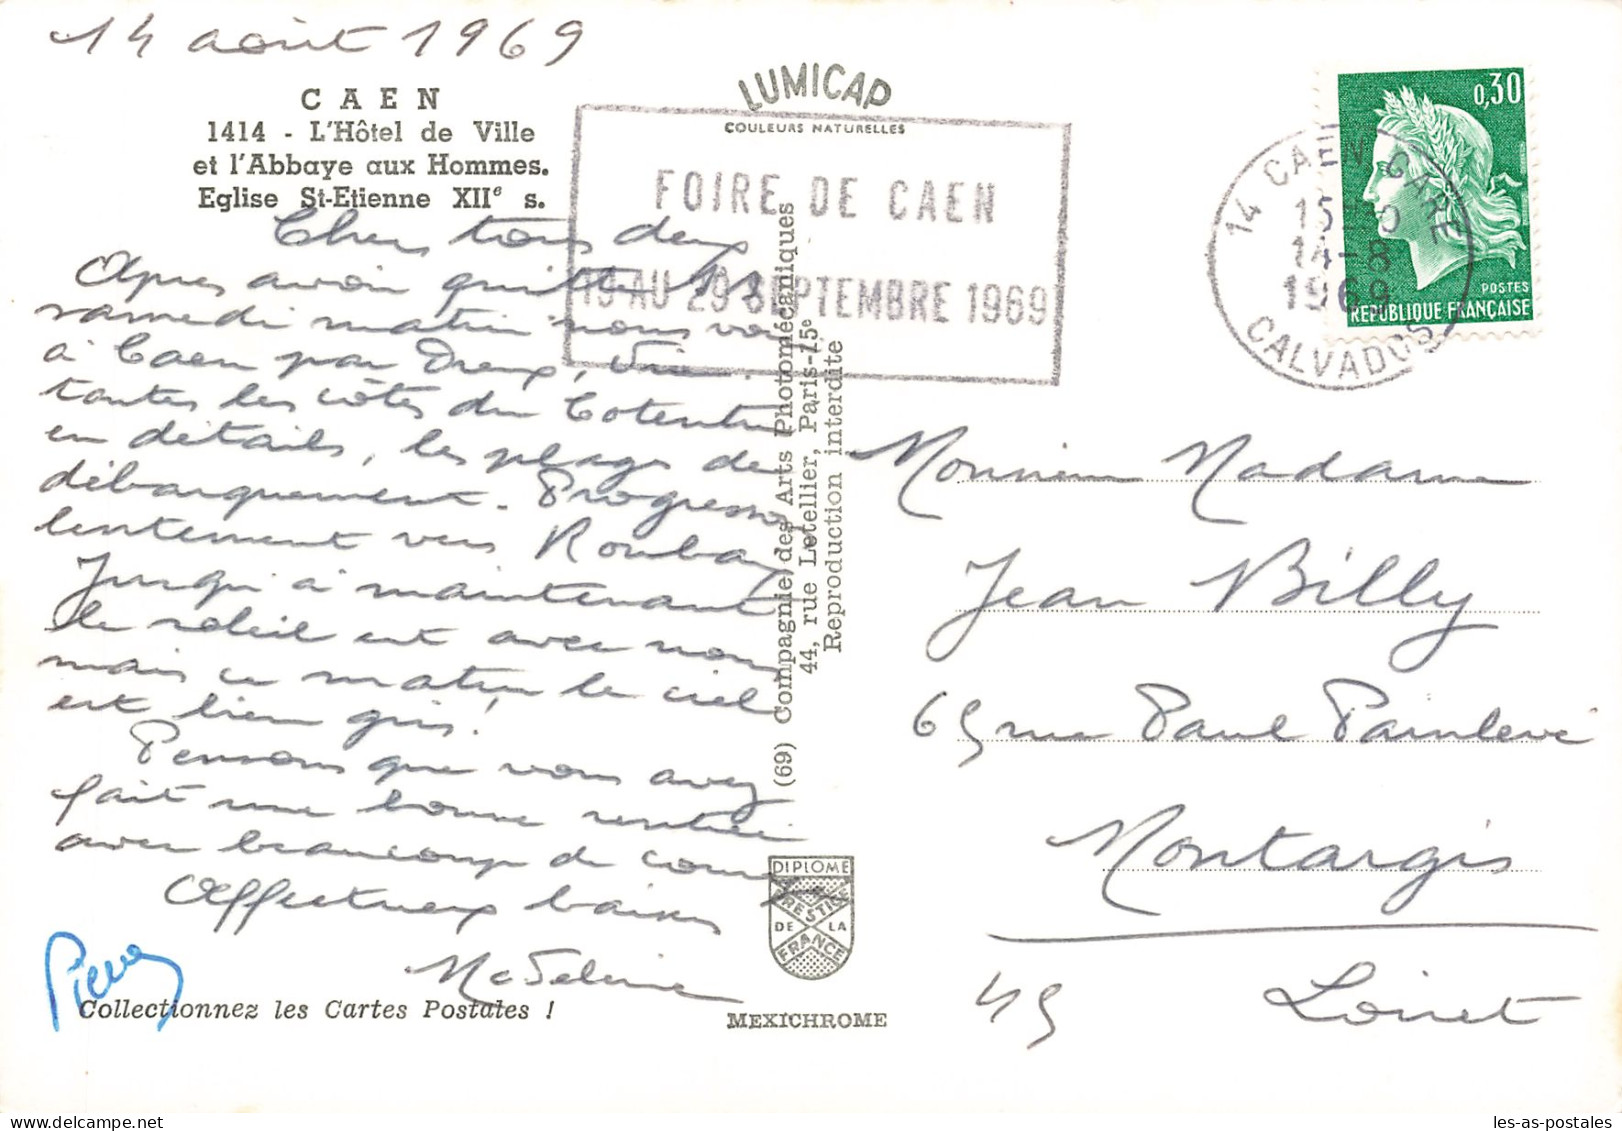 14 août 1969
CAEN
1414 - L'Hôtel de Ville
et l'Abbaye aux Hommes.
Eglise St-Etienne XIIe s.
Chers tous deux
Après avoir quitté
samedi matin nous
à Caen par Dreux, Vire.
toutes les côtes du Cotentin
en détails, les plages de
débarquement. Progressons
lentement vers Roubaix
Jusqu'à maintenant
le soleil est avec nous
mais ce matin le ciel
est bien gris!
Pensons que vous avez
fait une bonne rentrée
avec beaucoup de courage
Affectueux baisers
Madeleine
Pierre
Collectionnez les Cartes Postales !
LUMICAP
COULEURS NATURELLES
FOIRE DE CAEN
19 AU 29 SEPTEMBRE 1969
(69) Compagnie des Arts Photomécaniques
44, rue Letellier, Paris-15e
Reproduction interdite
DIPLOME
PRESTIGE
DE LA
FRANCE
MEXICHROME
0,30
POSTES
REPUBLIQUE FRANÇAISE
14 CAEN GARE
14-8
1969
CALVADOS
Monsieur Madame
Jean Billy
65 rue Paul Painlevé
Montargis
45 Loiret
les-as-postales